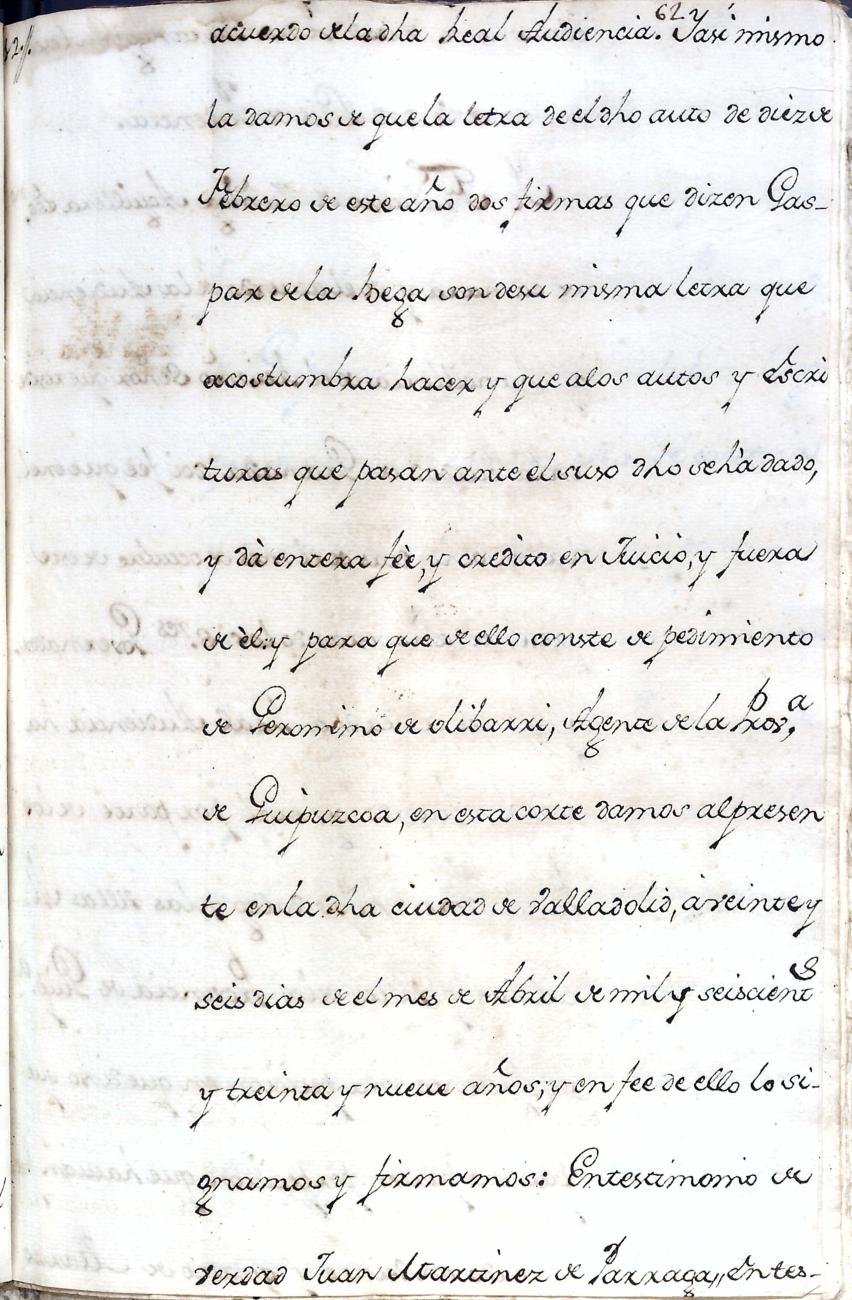 62
acuerdo de la dha Real Audiencia. Y asi mismo
la damos de que la letra de el dho auto de dièz de
Febrero de este año dos firmas que dizen Gas-
par de la Bega son de su misma letra que
acostumbra hacer y que a los autos y Escri
turas que pasan ante el suso dho se hà dado,
y dà entera fèe, y credito en Juicio, y fuera
de èl: y para que de ello conste de pedimiento
de Geronimo de olibarri, Agente de la Prov,ª
de Guipuzcoa, en esta corte damos al presen
te en la dha ciudad de Valladolid, à veinte y
seis dias de el mes de Abril de mil y seiscient,s
y treinta y nueve años; y en fee de ello lo si-
gnamos y firmamos: En testimonio de
verdad Juan Martinez de Parraga,, En tes-